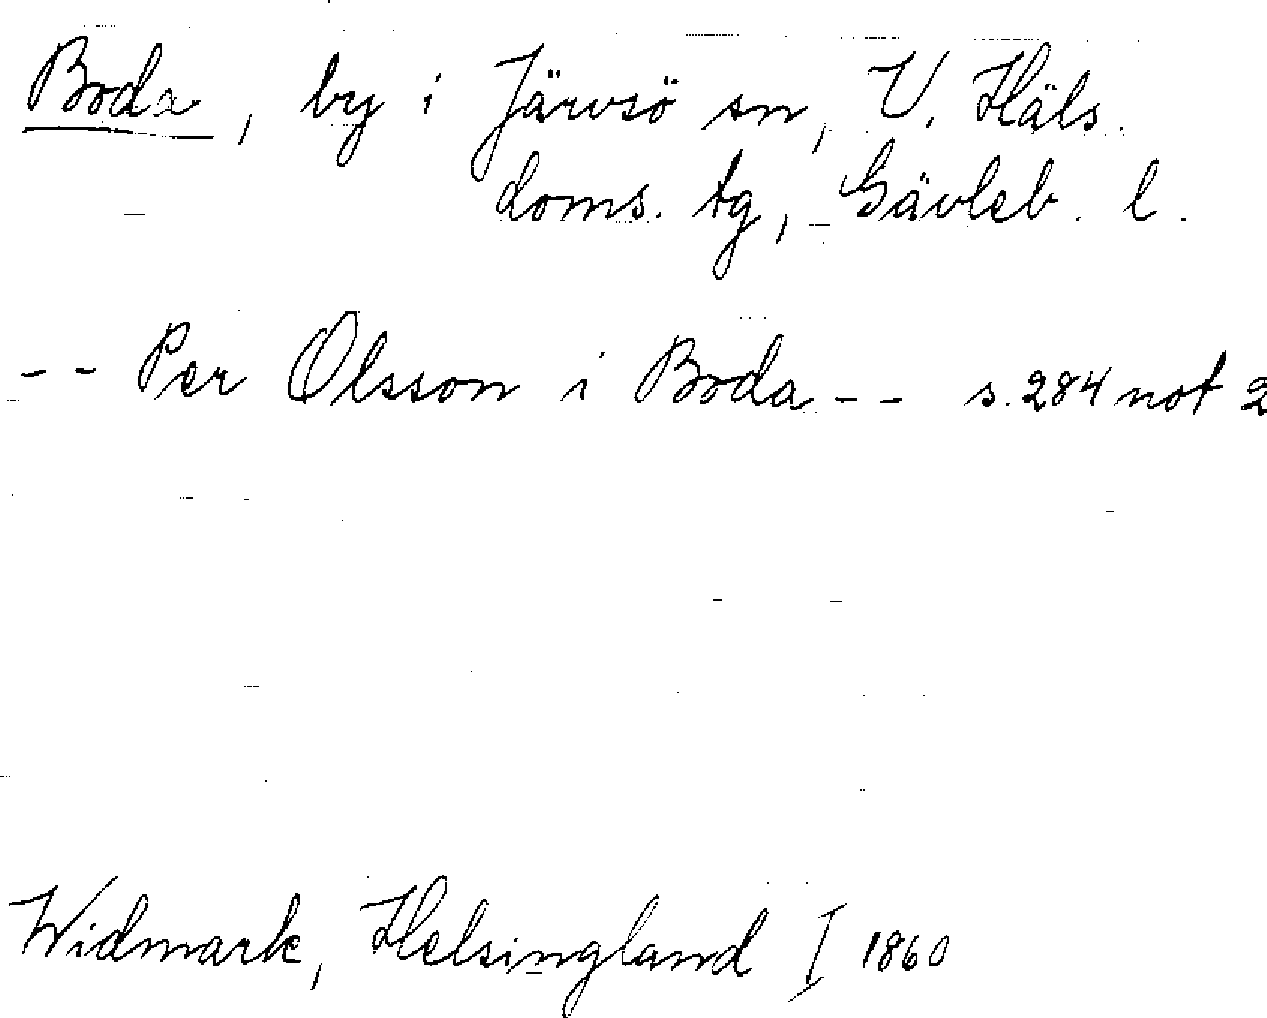 Boda, by i Järvsö sn, V. Häls.
doms. tg, Gävleb. l.
-- Per Olsson i Boda -- s. 284 not 2
Widmark, Helsingland I 1860